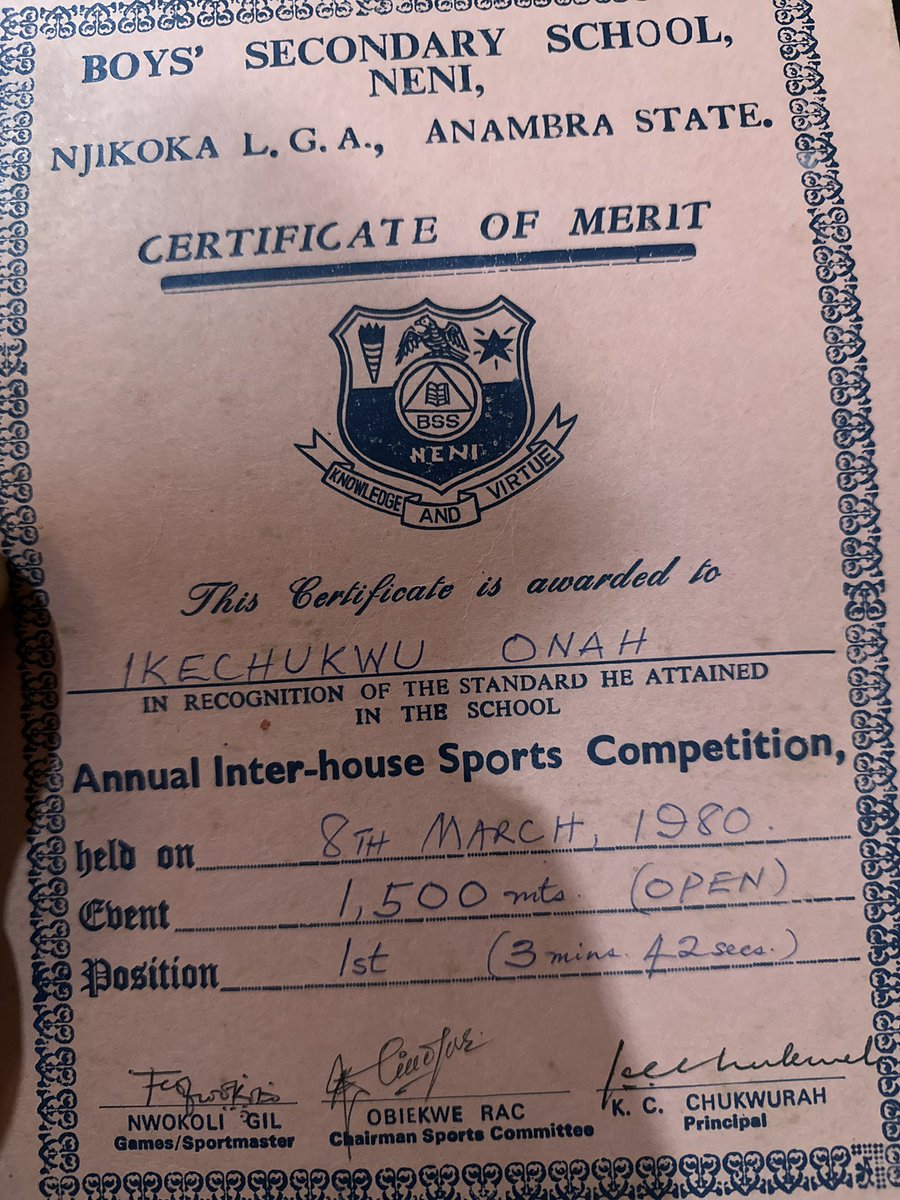 BOYS' SECONDARY SCHOOL,
NENI,
NJIKOKA L.G.A., ANAMBRA STATE.
CERTIFICATE OF MERIT
BSS
NENI
KNOWLEDGE AND VIRTUE
This Certificate is awarded to
IKECHUKWU ONAH
IN RECOGNITION OF THE STANDARD HE ATTAINED
IN THE SCHOOL
Annual Inter-house Sports Competition,
held on 8TH MARCH, 1980.
Event 1,500 mts. (OPEN)
Position 1st (3 mins. 42 secs.)
NWOKOLI GIL
Games/Sportmaster
OBIEKWE RAC
Chairman Sports Committee
K. C. CHUKWURAH
Principal